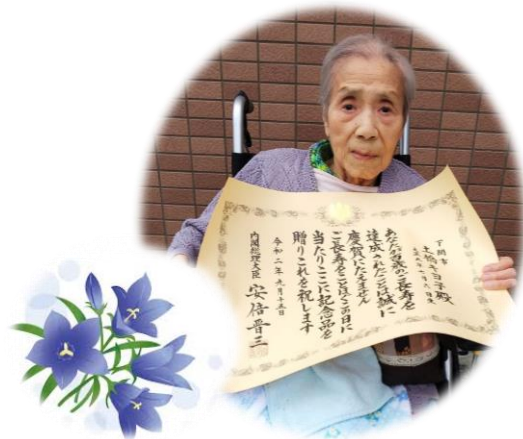 下関市
土橋キヨ子殿
あなたが百歳のご長寿を
達成されたことは誠に
慶賀にたえません
ご長寿をことほぐこの日に
当たりここに記念品を
贈りこれを祝します
令和二年九月十五日
内閣総理大臣 安倍晋三